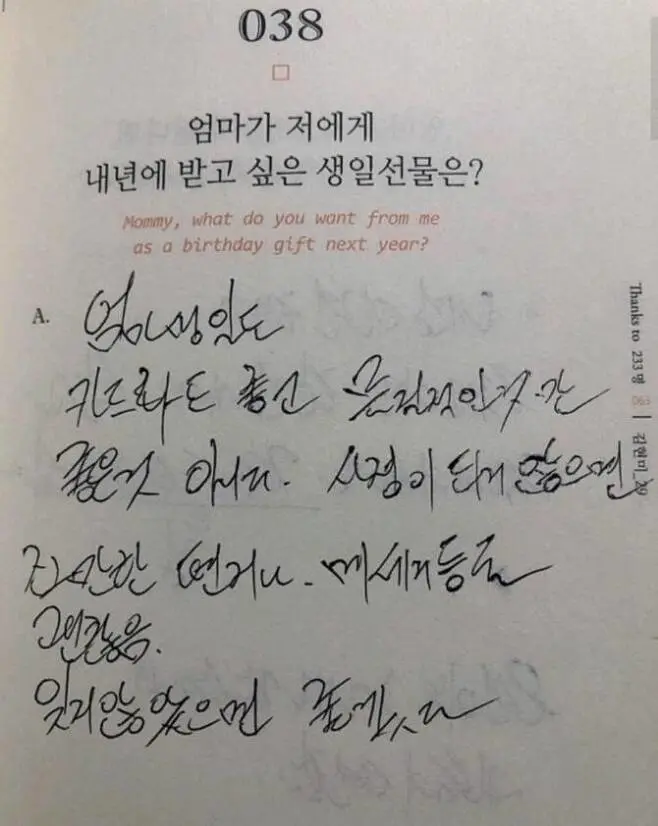 038
엄마가 저에게
내년에 받고 싶은 생일선물은?
Mommy, what do you want from me
as a birthday gift next year?
A. 엄마생일도
카드라도 좋고 물질적인
좋은것 아니다. 사정이 되지 않으면
메세지등도
괜찮음.
잊지않았으면 좋겠다
Thanks to 233명 063 김현미